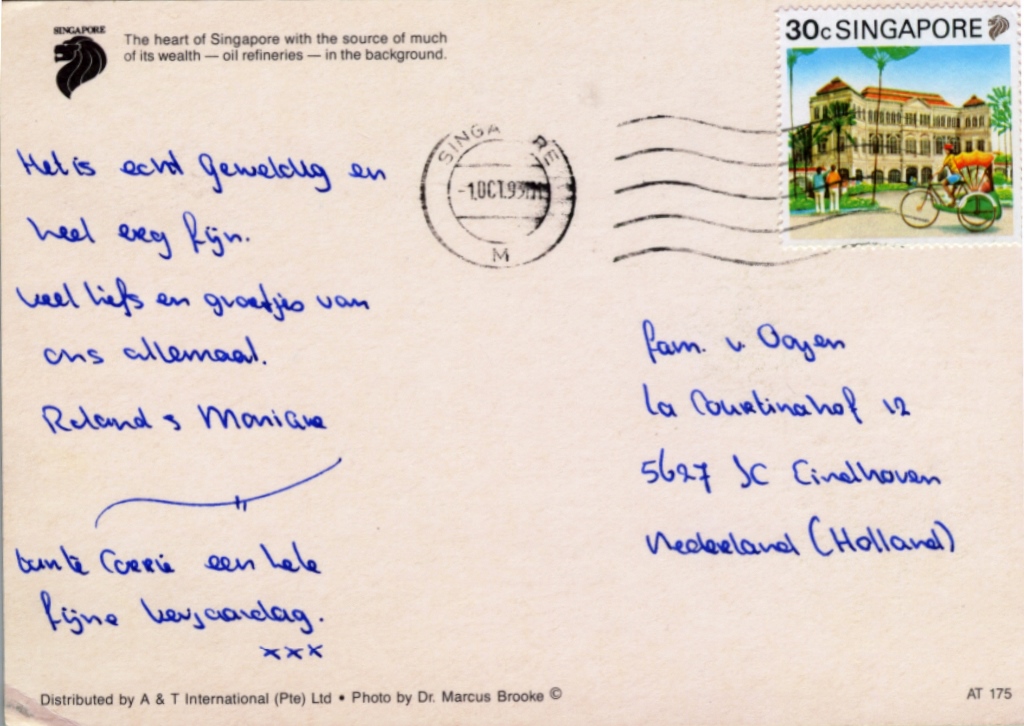 SINGAPORE
The heart of Singapore with the source of much
of its wealth — oil refineries — in the background.
30c SINGAPORE
SINGA RE
-1 OCT. 93
M
Het is echt geweldig en
heel erg fijn.
veel liefs en groetjes van
ons allemaal.
Roland & Monique
tante Corrie een hele
fijne verjaardag.
xxx
fam. v. Ooyen
La Courtinahof 12
5627 JC Eindhoven
Nederland (Holland)
Distributed by A & T International (Pte) Ltd • Photo by Dr. Marcus Brooke ©
AT 175